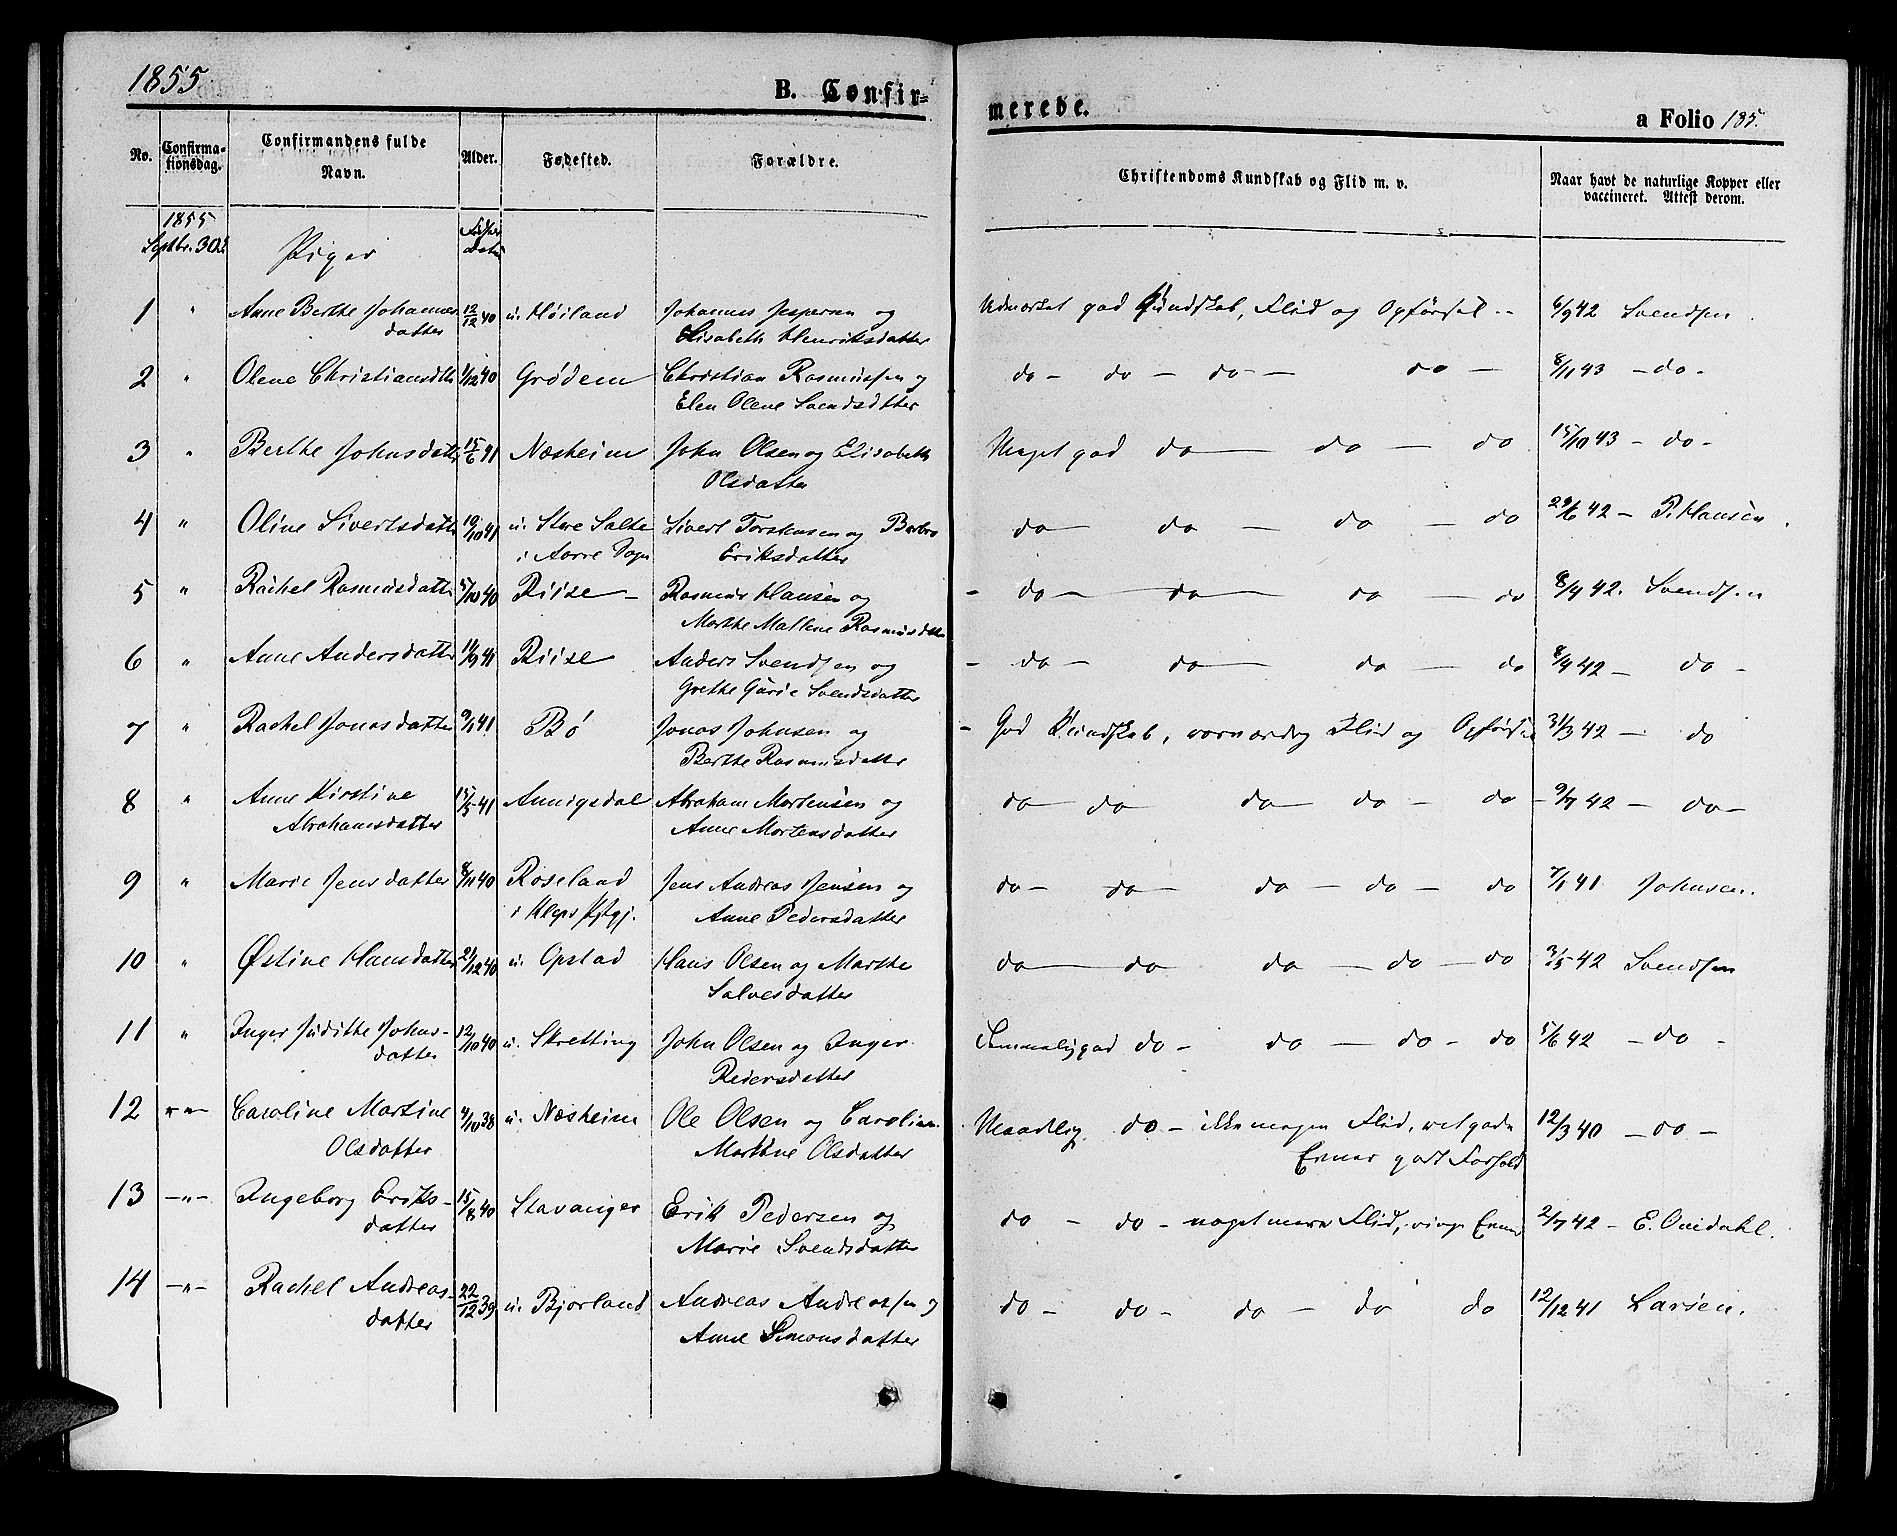 1855
B. Confir=
merede.
a Folio 185.
No.
Confirma-
tionsdag.
Confirmandens fulde
Navn.
Alder.
Fødested.
Forældre.
Christendoms Kundskab og Flid m. v.
Naar havt de naturlige Kopper eller
vaccineret. Attest derom.
1855
Septbr. 30d
Piger
1 " Anne Berthe Johannes 12/12 40 u. Høiland Johannes Jespersen og Udmærket god Kundskab, Flid og Opførsel -- 6/9 42 Svendsen.
datter Elisabeth Henriksdatter
2 " Olene Christiansdtr 1/12 40 Grødem Christian Rasmussen og do - do - do - - do - 8/11 43 - do -
Elen Olene Svendsdtter
3 " Berthe Johnsdatter 15/6 41 Næsheim John Olsen og Elisabeth Meget god do - do - do 15/10 43 - do -
Olsdatter
4 " Oline Sivertsdatter 19/10 41 u. Store Salte Sivert Torstensen og Berbro do - do - do - do 29/6 42 - P. Hansen.
i Aarre Sogn Eriksdatter
5 " Rachel Rasmusdatter 5/10 40 Riise - Rasmus Hansen og - do - do - do - do 8/9 42. Svendsen
Marthe Mallene Rasmusdtr
6 " Anne Andersdatter 11/9 41 Riise Anders Svendsen og - do - do - do - do 8/9 42 - do -
Grethe Gurie Svendsdatter
7 " Rachel Jonasdatter 9/1 41 Bø Jonas Johnsen og - God Kundskab, Flid og Opførsel 31/3 42 - do
Berthe Rasmusdatter
8 " Anne Kirstine 15/5 41 Annigsdal Abraham Mortensen og do - do - do - do - do - 9/7 42 - do -
Abrahamsdatter Anne Mortensdatter
9 " Marie Jensdatter 8/11 40 Roseland Jens Andreas Jensen og do - do - do - do - do 7/1 41 Johnsen.
i Kleps Anne Pedersdatter
10 " Østine Hansdatter 21/12 40 u. Opstad Hans Olsen og Marthe do - do - do - do - do 3/5 42 Svendsen
Salvesdatter
11 " Inger Judithe Johns- 12/10 40 u. Skretting John Olsen og Inger do - do - do - do 5/6 42 - do -
datter Pedersdatter
12 -"- Caroline Martine 4/10 38 u. Næsheim Ole Olsen og Caroline Maadelig do - ikke megen Flid, 12/3 40 - do -
Olsdatter Martine Olsdatter Evner godt Forhold
13 -"- Ingeborg Eriks- 15/8 40 Stavanger Erik Pedersen og do - do - noget mere Flid, ringe Evner 2/7 42 - E. Ovedahl.
datter Marie Svendsdatter
14 -"- Rachel Andreas- 22/12 39 u. Bjorland Andreas Andreassen og do - do - do - do do 12/12 41 Larsen.
datter Anne Simonsdatter